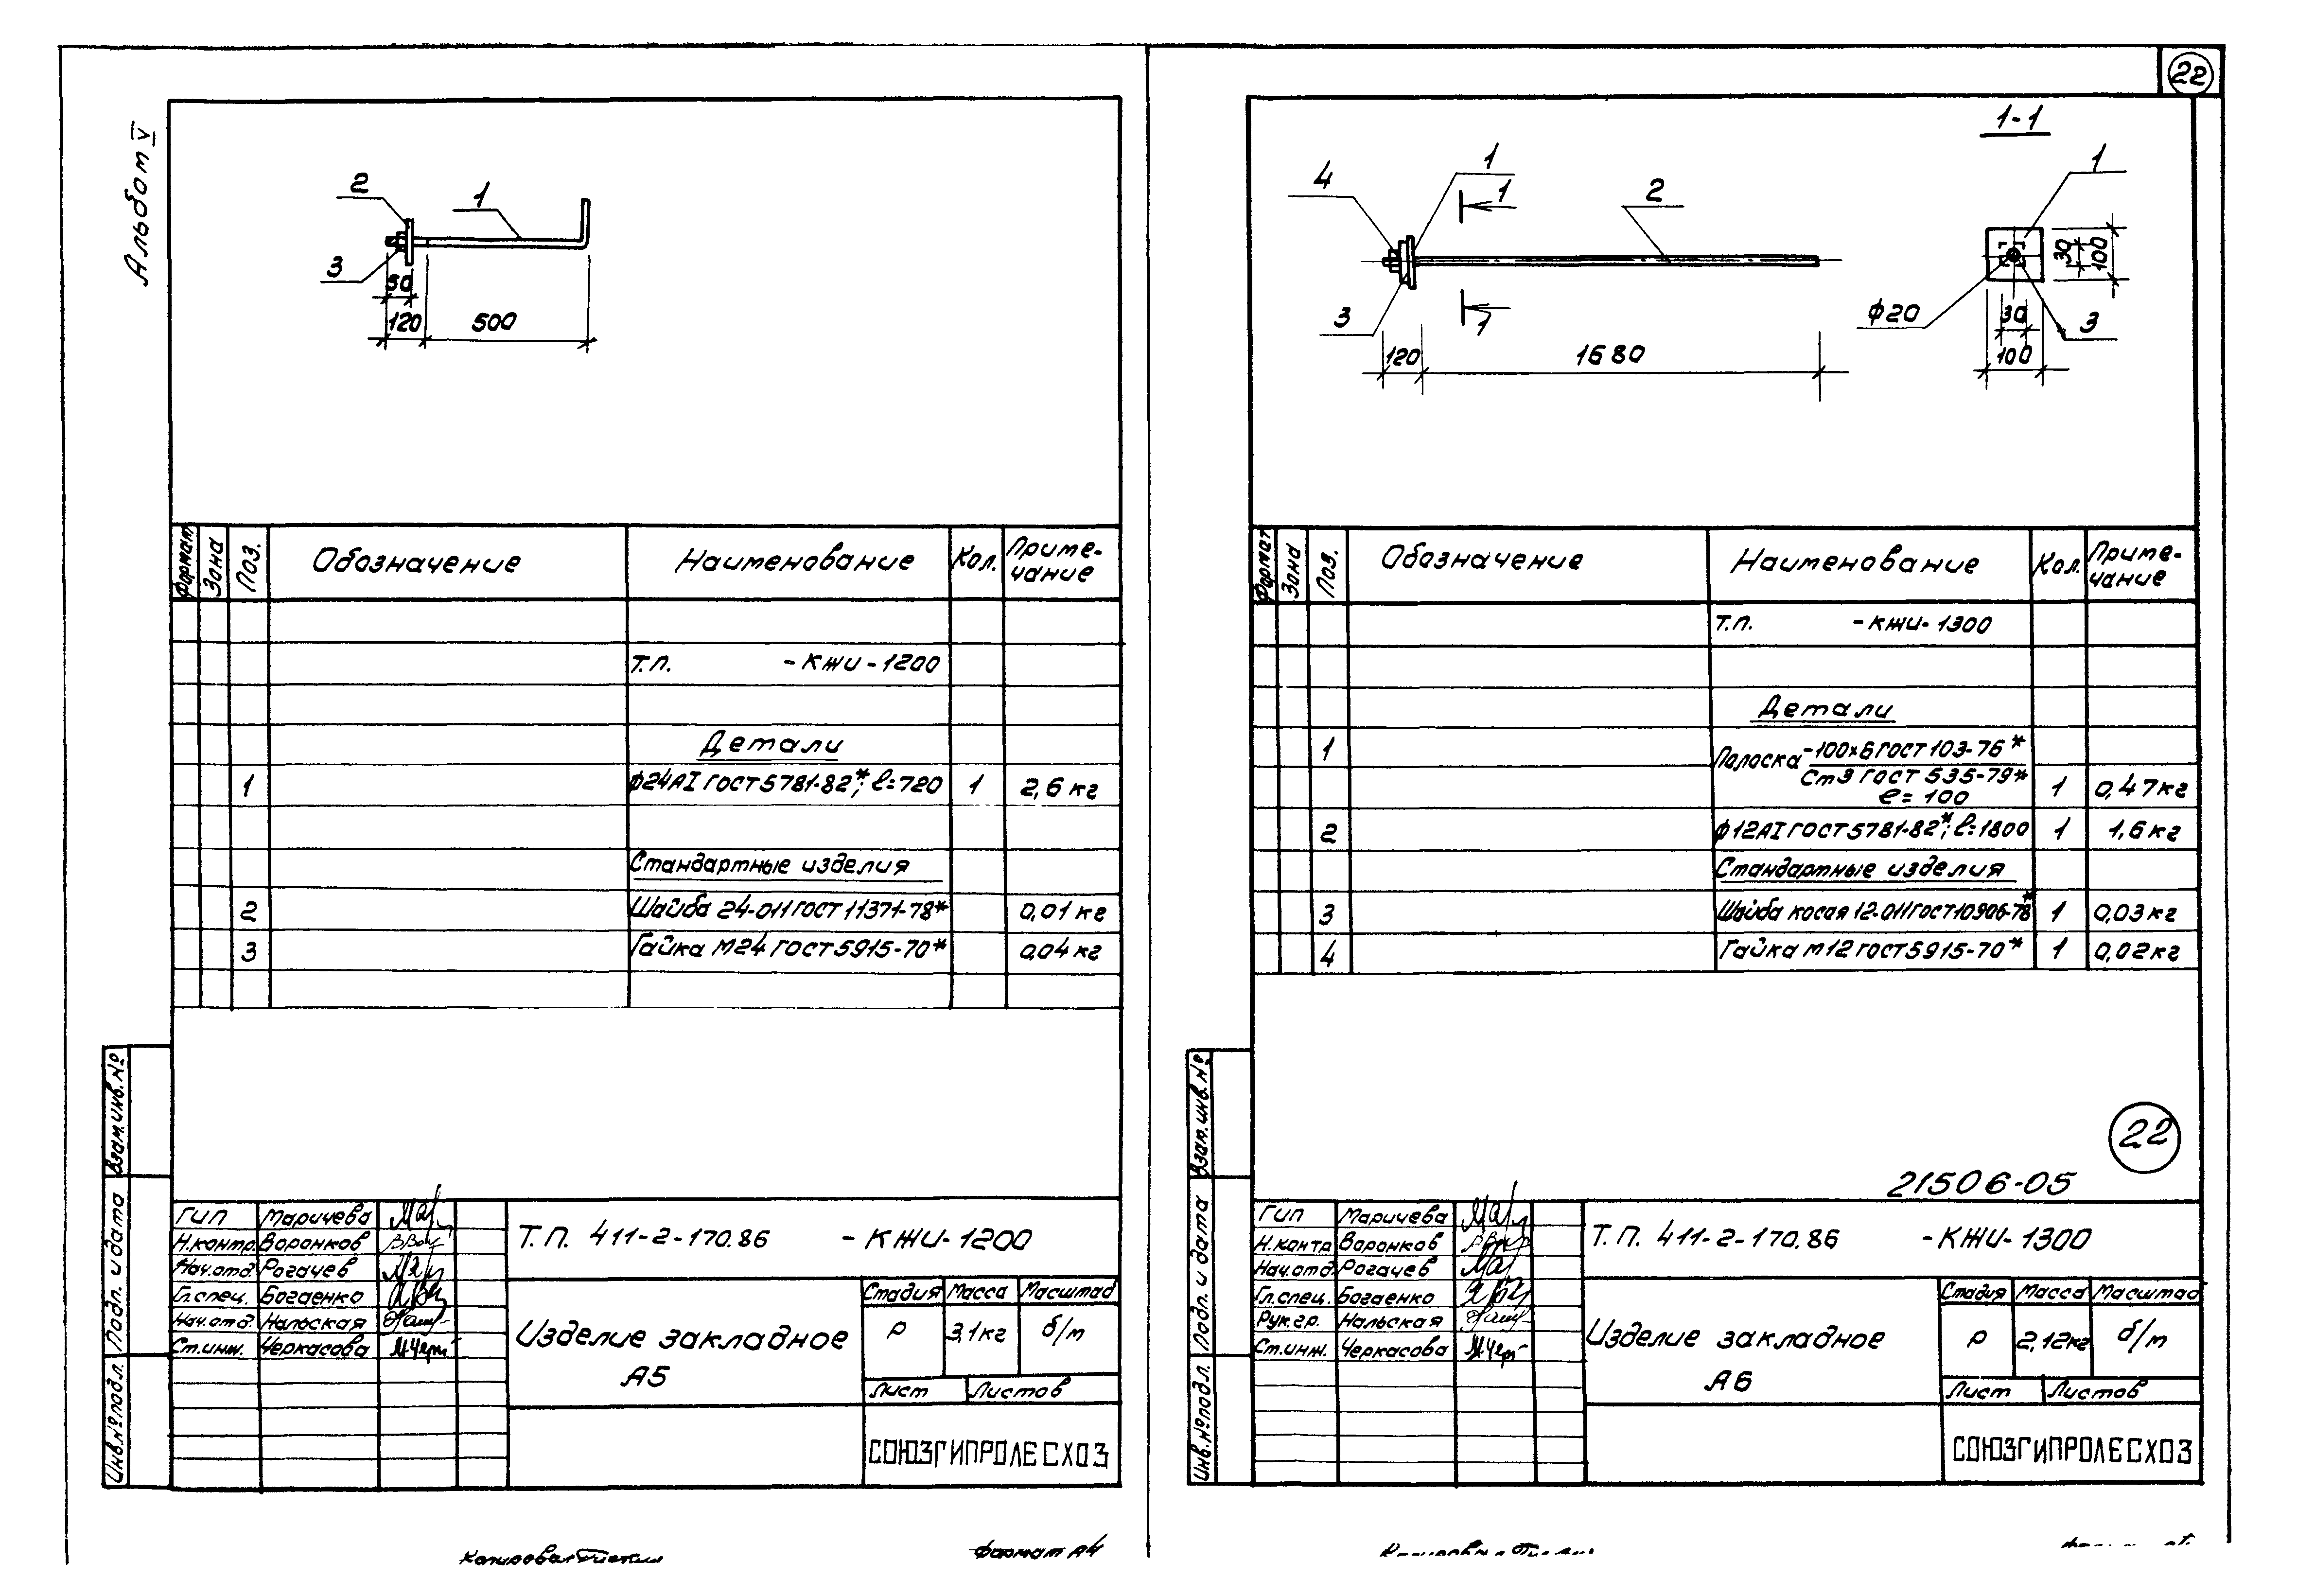 Альбом V
2
1
3
50
120
500
Формат
Зона
Поз.
Обозначение
Наименование
Кол.
Приме-
чание
Т.П. -КЖИ-1200
Детали
1 ф24АI ГОСТ 5781-82*; l=720 1 2,6 кг
Стандартные изделия
2 Шайба 24-011 ГОСТ 11371-78* 0,01 кг
3 Гайка М24 ГОСТ 5915-70* 0,04 кг
Взам.инв.№
Подп. и дата
Инв.№ подл.
ГИП Маричева
Н.контр. Воронков
Нач.отд. Рогачев
Гл.спец. Богаенко
Нач.отд. Нальская
Ст.инж. Черкасова
Т.П. 411-2-170.86 -КЖИ-1200
Изделие закладное
А5
Стадия Масса Масштаб
Р 3,1кг б/м
Лист Листов
СОЮЗГИПРОЛЕСХОЗ
Копировал
Формат А4
22
1-1
4
1
1
2
3
1
120
1680
1
30
100
ф20
30
3
100
Формат
Зона
Поз.
Обозначение
Наименование
Кол.
Приме-
чание
Т.П. -КЖИ-1300
Детали
1 Полоска -100х6 ГОСТ 103-76*
Ст3 ГОСТ 535-79*
l= 100 1 0,47кг
2 ф12АI ГОСТ 5781-82*; l=1800 1 1,6 кг
Стандартные изделия
3 Шайба косая 12-011 ГОСТ 10906-78* 1 0,03 кг
4 Гайка М12 ГОСТ 5915-70* 1 0,02 кг
22
21506-05
Взам.инв.№
Подп. и дата
Инв.№ подл.
ГИП Маричева
Н.контр Воронков
Нач.отд. Рогачев
Гл.спец. Богаенко
Рук.гр. Нальская
Ст.инж. Черкасова
Т.П. 411-2-170.86 -КЖИ-1300
Изделие закладное
А6
Стадия Масса Масштаб
Р 2,12кг б/м
Лист Листов
СОЮЗГИПРОЛЕСХОЗ